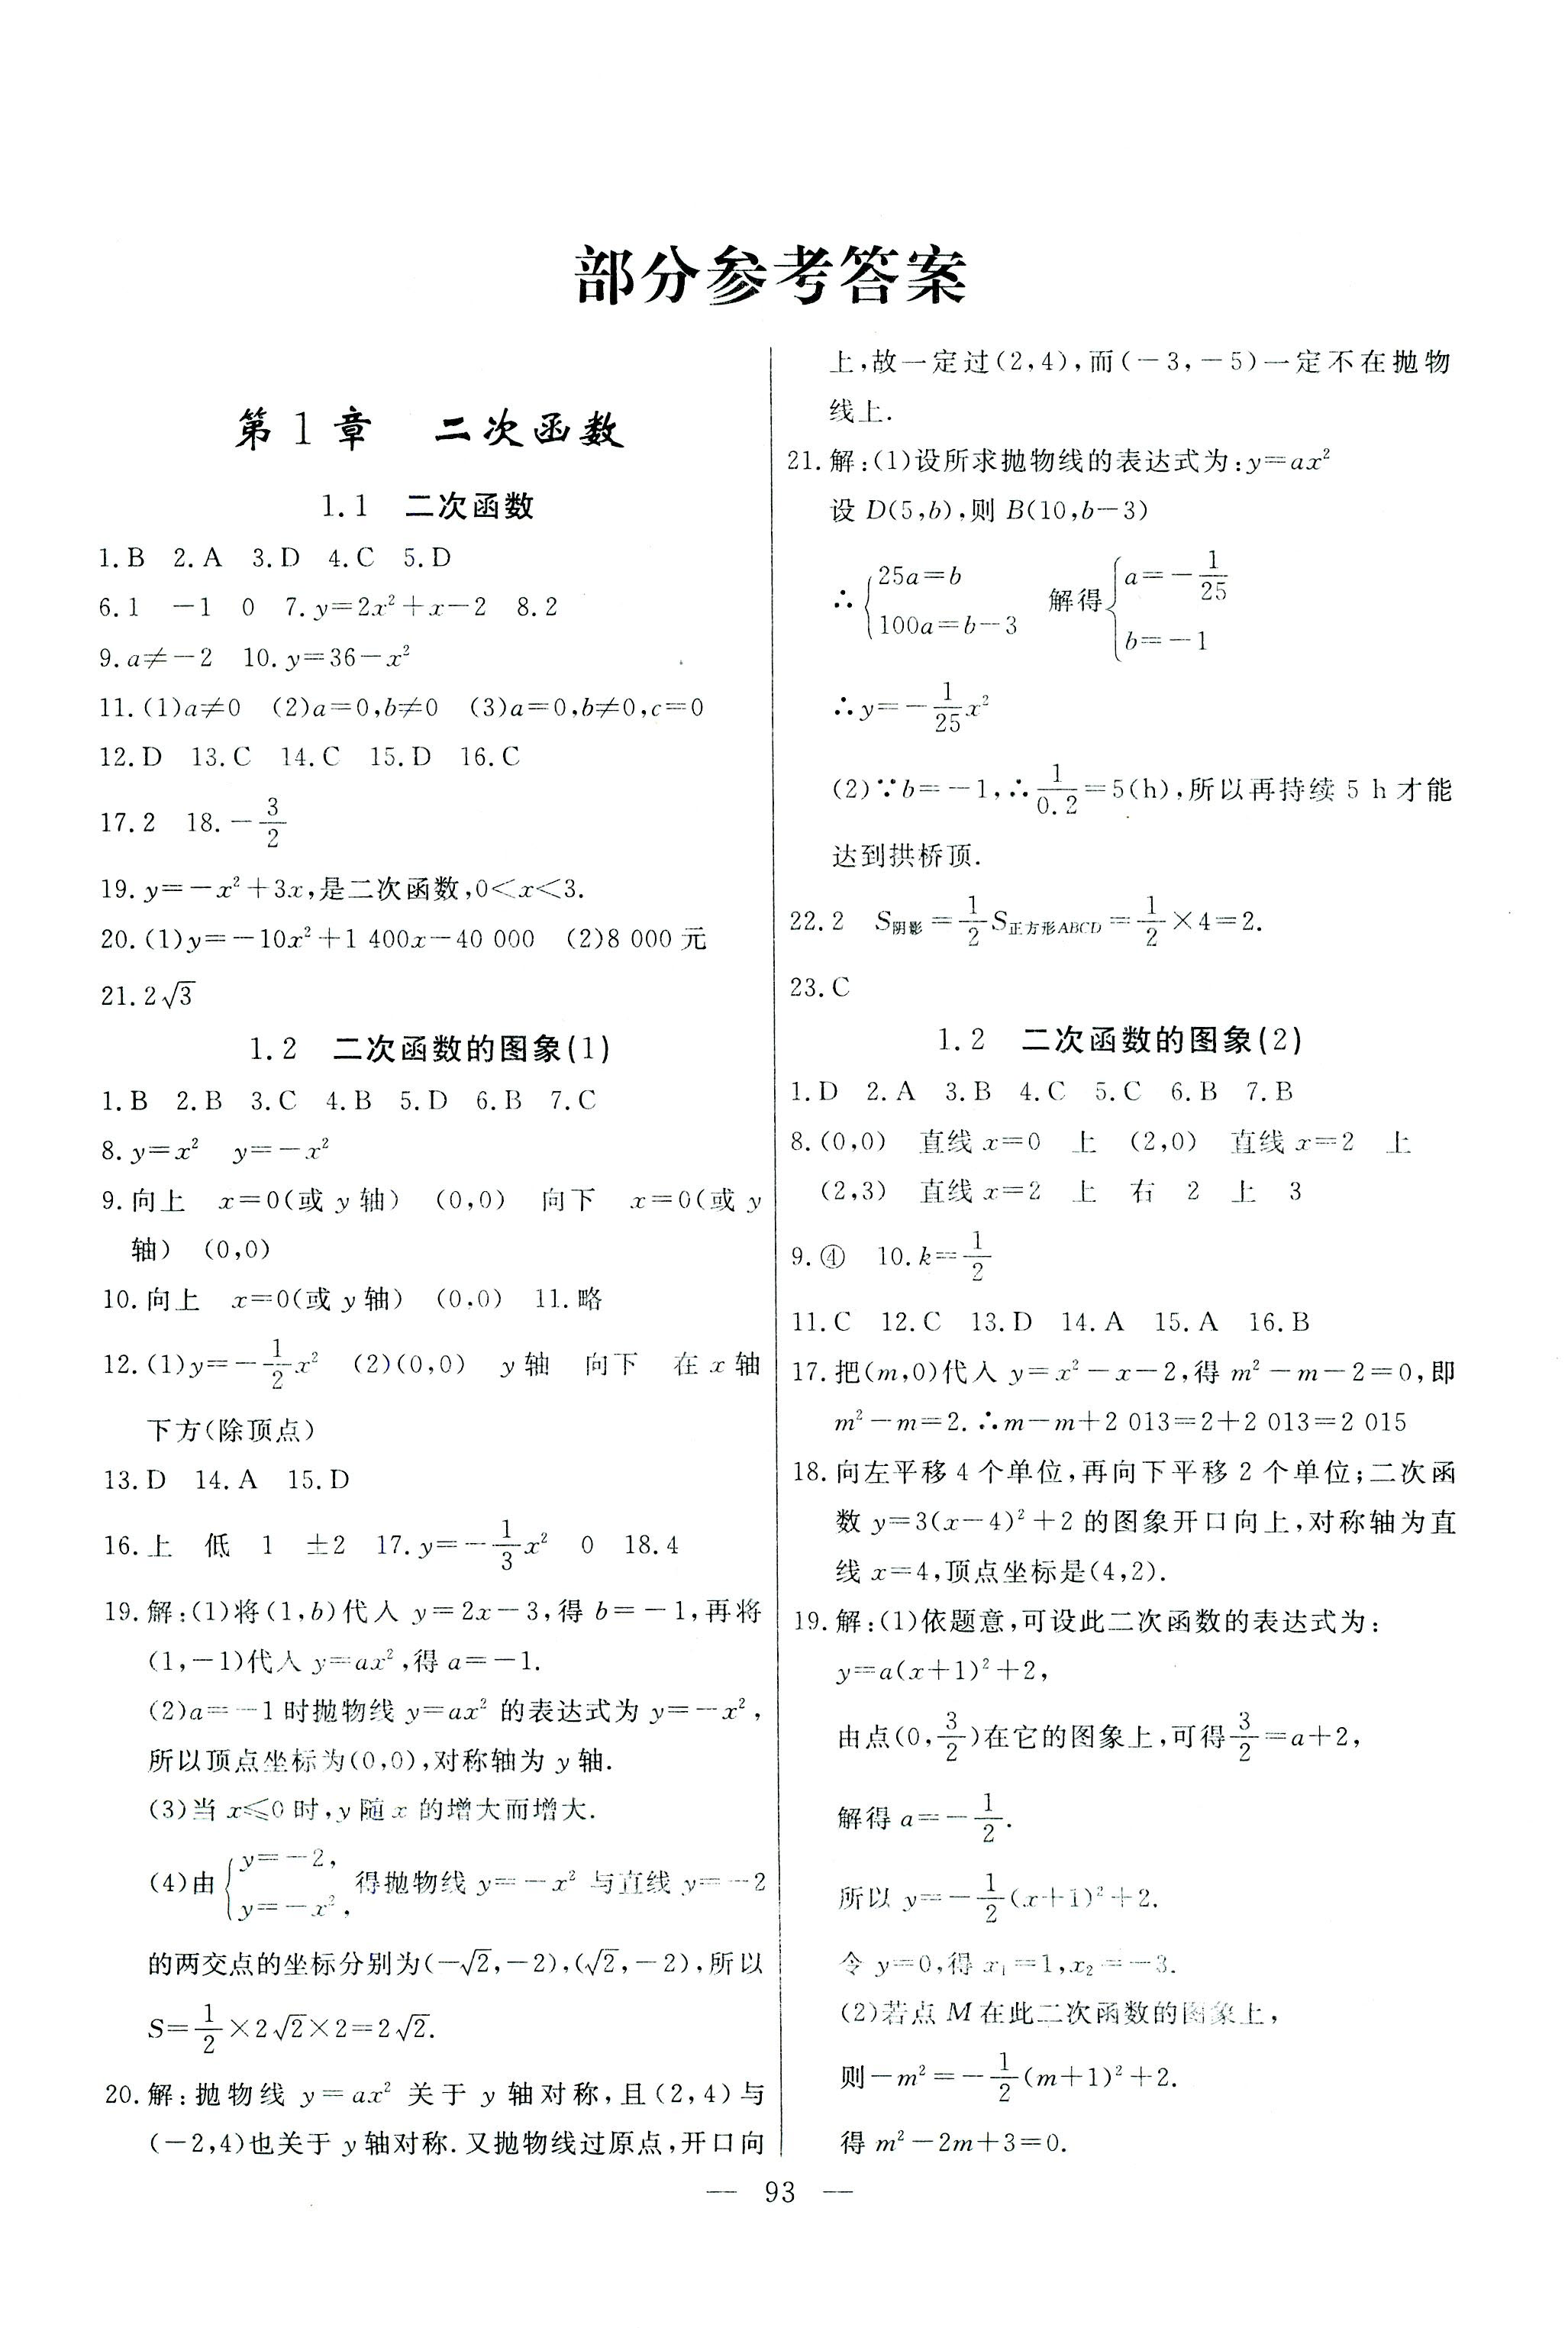 部分参考答案
第1章 二次函数
1.1 二次函数
1.B 2.A 3.D 4.C 5.D
6.1 -1 0 7.y=2x²+x-2 8.2
9.a≠-2 10.y=36-x²
11.(1)a≠0 (2)a=0,b≠0 (3)a=0,b≠0,c=0
12.D 13.C 14.C 15.D 16.C
17.2 18.-3/2
19.y=-x²+3x,是二次函数,0<x<3.
20.(1)y=-10x²+1 400x-40 000 (2)8 000元
21.2√3
1.2 二次函数的图象(1)
1.B 2.B 3.C 4.B 5.D 6.B 7.C
8.y=x² y=-x²
9.向上 x=0(或y轴) (0,0) 向下 x=0(或y
轴) (0,0)
10.向上 x=0(或y轴) (0,0) 11.略
12.(1)y=-1/2x² (2)(0,0) y轴 向下 在x轴
下方(除顶点)
13.D 14.A 15.D
16.上 低 1 ±2 17.y=-1/3x² 0 18.4
19.解:(1)将(1,b)代入y=2x-3,得b=-1,再将
(1,-1)代入y=ax²,得a=-1.
(2)a=-1时抛物线y=ax²的表达式为y=-x²,
所以顶点坐标为(0,0),对称轴为y轴.
(3)当x≤0时,y随x的增大而增大.
(4)由{y=-2, y=-x², 得抛物线y=-x²与直线y=-2
的两交点的坐标分别为(-√2,-2),(√2,-2),所以
S=1/2×2√2×2=2√2.
20.解:抛物线y=ax²关于y轴对称,且(2,4)与
(-2,4)也关于y轴对称.又抛物线过原点,开口向
上,故一定过(2,4),而(-3,-5)一定不在抛物
线上.
21.解:(1)设所求抛物线的表达式为:y=ax²
设D(5,b),则B(10,b-3)
∴{25a=b 100a=b-3 解得{a=-1/25 b=-1
∴y=-1/25x²
(2)∵b=-1,∴1/0.2=5(h),所以再持续5 h才能
达到拱桥顶.
22.2 S阴影=1/2S正方形ABCD=1/2×4=2.
23.C
1.2 二次函数的图象(2)
1.D 2.A 3.B 4.C 5.C 6.B 7.B
8.(0,0) 直线x=0 上 (2,0) 直线x=2 上
(2,3) 直线x=2 上 右 2 上 3
9.④ 10.k=1/2
11.C 12.C 13.D 14.A 15.A 16.B
17.把(m,0)代入y=x²-x-2,得m²-m-2=0,即
m²-m=2.∴m-m+2 013=2+2 013=2 015
18.向左平移4个单位,再向下平移2个单位;二次函
数y=3(x-4)²+2的图象开口向上,对称轴为直
线x=4,顶点坐标是(4,2).
19.解:(1)依题意,可设此二次函数的表达式为:
y=a(x+1)²+2,
由点(0,3/2)在它的图象上,可得3/2=a+2,
解得a=-1/2.
所以y=-1/2(x+1)²+2.
令y=0,得x₁=1,x₂=-3.
(2)若点M在此二次函数的图象上,
则-m²=-1/2(m+1)²+2.
得m²-2m+3=0.
— 93 —